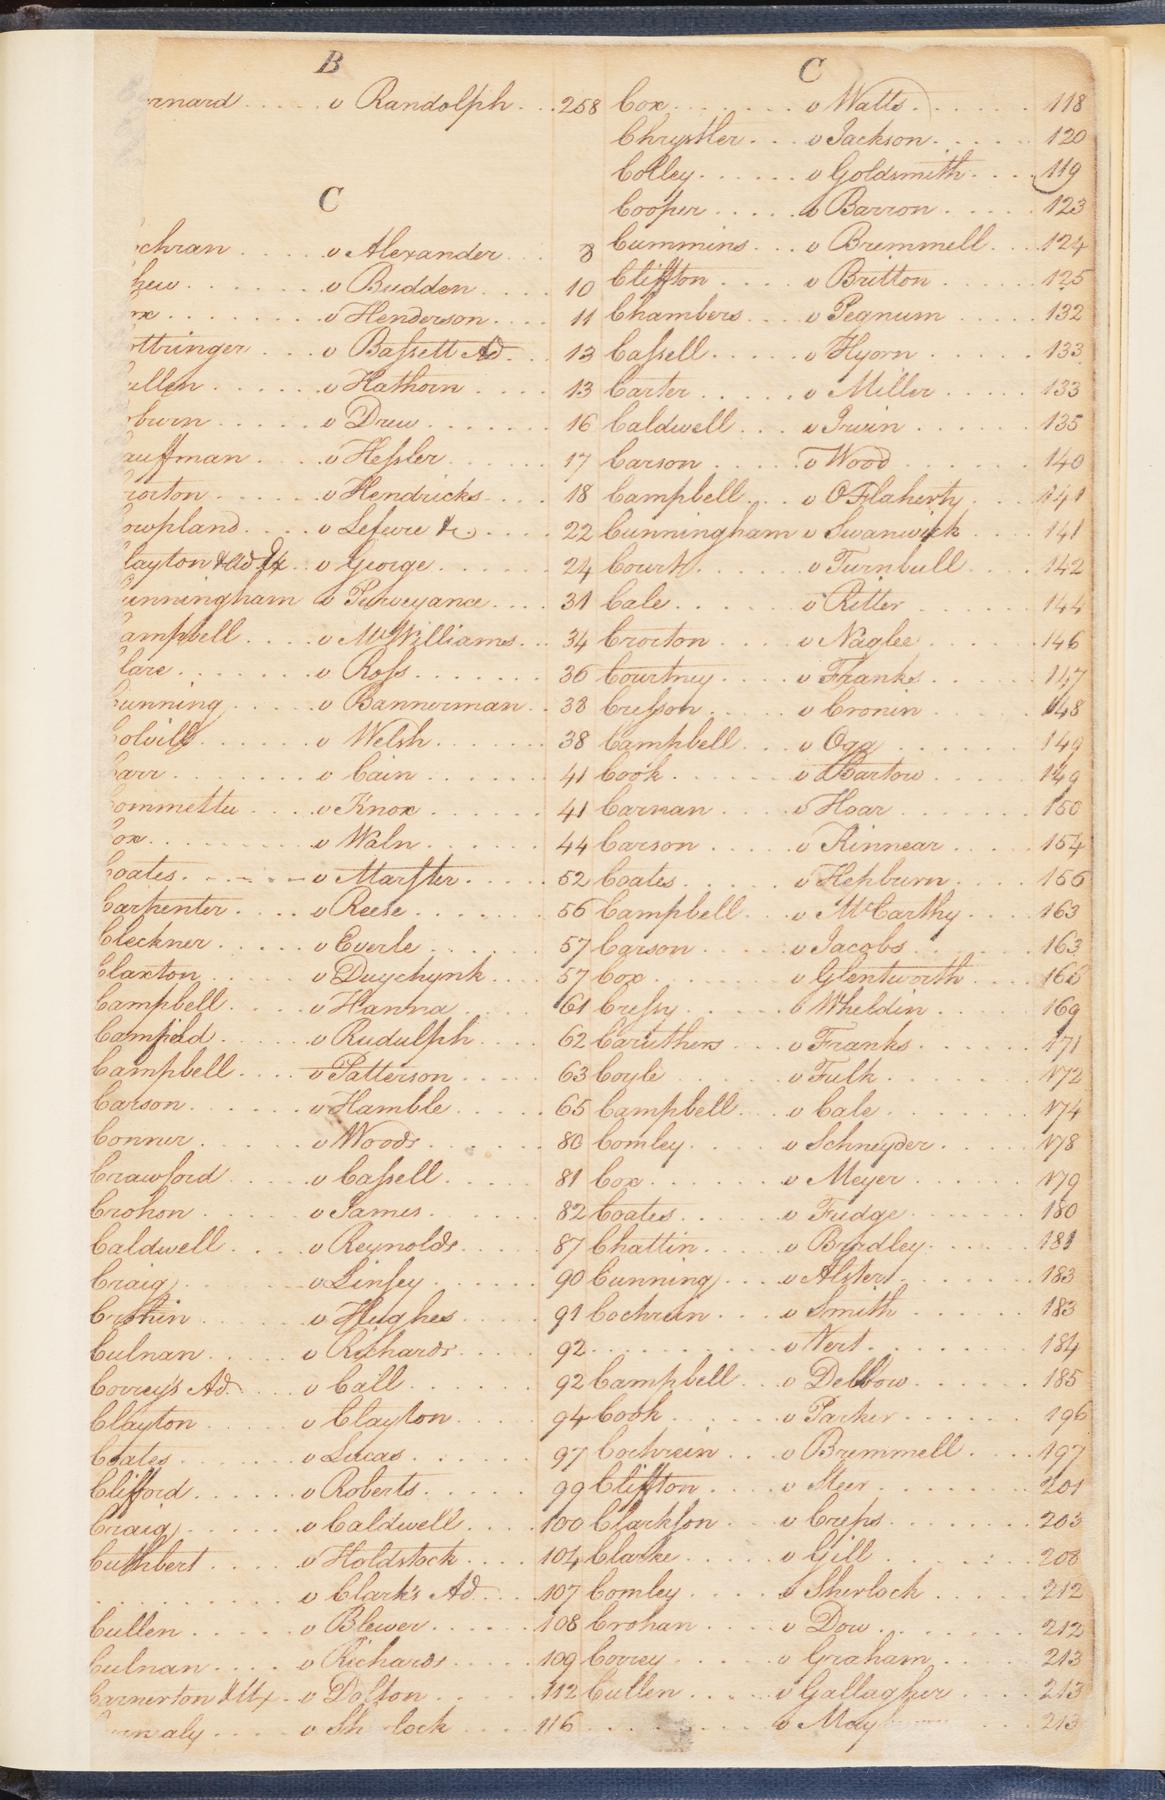 B
ernard . . . . . v Randolph . . . 258
C
chran . . . . . v Alexander . . 8
hew . . . . . . v Budden . . . . 10
ox . . . . . . . v Henderson . . . . 11
ttringer . . . v Bassett Ad. . . 13
ullen . . . . . . v Hathorn . . . . 13
burn . . . . . v Drew . . . . . . . 16
auffman . . . v Hessler . . . . . . 17
roxton . . . . . v Hendricks . . . . 18
owpland . . . . v Lefevre &c . . . . 22
layton & Ad. Ux . . v George . . . . . . 24
unningham v Purveyance . . . . 31
ampbell . . . . v McWilliams . . . 34
lare . . . . . . . v Ross . . . . . . . 36
unning . . . . . v Bannerman . . 38
olvill . . . . . . v Welsh . . . . . . . 38
arr . . . . . . . v Cain . . . . . . . 41
ommettu . . . . v Knox . . . . . . 41
ox . . . . . . . . v Waln . . . . . . . 44
Coates . . . . . v Marshter . . . . . 52
Carpenter . . . . v Reese . . . . . . . 56
Cleckner . . . . . v Everle . . . . . . 57
Claxton . . . . . v Duychynk . . . . 57
Campbell . . . . v Hanna . . . . . 61
Camfield . . . . . v Rudulph . . . . 62
Campbell . . . . v Patterson . . . . . 63
Carson . . . . . . v Hamble . . . . . 65
Conner . . . . . . v Woods . . . . . . 80
Crawford . . . . v Cassell . . . . . . 81
Crohon . . . . . v James . . . . . . 82
Caldwell . . . . v Reynolds . . . . . 87
Craig . . . . . . v Linsey . . . . . . 90
v Hughes . . . . . 91
Culnan . . . . . v Richards . . . . . 92
Covrey's Ad. . . . v Call . . . . . . . 92
Clayton . . . . . v Clayton . . . . . 94
Coates . . . . . . v Lucas . . . . . . 97
Clifford . . . . . . v Roberts . . . . . 99
Craig . . . . . . v Caldwell . . . . 100
Cuthbert . . . . . v Holdstock . . . . 104
. . . . . . . . . . v Clark's Ad . . . 107
Cullen . . . . . . v Blewer . . . . . . 108
Culnan . . . . v Richards . . . . . 109
Carnerton & Ux . . v Dolton . . . . . 112
aly . . . . v Sh lock . . . . 116
C
Cox . . . . . . . v Watts . . . . . . . 118
Chrystler . . . v Jackson . . . . . . 120
Colley . . . . . . v Goldsmith . . . . 119
Cooper . . . . . v Barron . . . . . 123
Cummins . . . v Bremmell . . . 124
Clifton . . . . . v Britton . . . . . . 125
Chambers . . . v Pegnum . . . . . 132
Cassell . . . . . v Hyorn . . . . . . 133
Carter . . . . . v Miller . . . . . . 133
Caldwell . . . v Irwin . . . . . . 135
Carson . . . . . v Wood . . . . . . 140
Campbell . . . v O'Flaherty . . . 141
Cunningham v Swanwick . . . . 141
Court . . . . . . v Turnbull . . . . 142
Cale . . . . . . v Ritter . . . . . . 144
Croxton . . . . . v Naglee . . . . . . 146
Courtney . . . . v Franks . . . . . . 147
Cresson . . . . . v Cronin . . . . . 148
Campbell . . . v Ogg . . . . . . . 149
Cook . . . . . . v Bartow . . . . . 149
Carnan . . . . v Hoar . . . . . . . 150
Carson . . . . . v Kinnear . . . . . 154
Coates . . . . . v Hepburn . . . . 156
Campbell . . . v McCarthy . . . . 163
Carson . . . . . v Jacobs . . . . . . 163
Cox . . . . . . . v Glentworth . . . . 166
Cressy . . . . . . v Wheldin . . . . . 169
Caruthers . . . v Franks . . . . . . 171
Coyle . . . . . . v Fulk . . . . . . . 172
Campbell . . . v Cale . . . . . . . 174
Comley . . . . . v Schneyder . . . . 178
Cox . . . . . . . v Meyer . . . . . . 179
Coates . . . . . . v Fudge . . . . . . 180
Chattin . . . . . v Burdley . . . . . 181
Cunning . . . v Alster . . . . . . . 183
Cochrein . . . . v Smith . . . . . . 183
. . . . . . . . . . v Nert . . . . . . . 184
Campbell . . . v Debbow . . . . . 185
Cook . . . . . . v Parker . . . . . . 196
Cochrein . . . v Bremmell . . . . 197
Clifton . . . . . v Steer . . . . . . . 201
Clarkson . . . v Creps . . . . . . . 203
Clarke . . . . . v Gill . . . . . . . 208
Comley . . . . . v Sherlock . . . . . 212
Crohan . . . . . v Dow . . . . . . . 212
Covrey . . . . . v Graham . . . . . 213
Cullen . . . . . v Gallagher . . . . 213
. . . . . . . . . . v May . . . 213